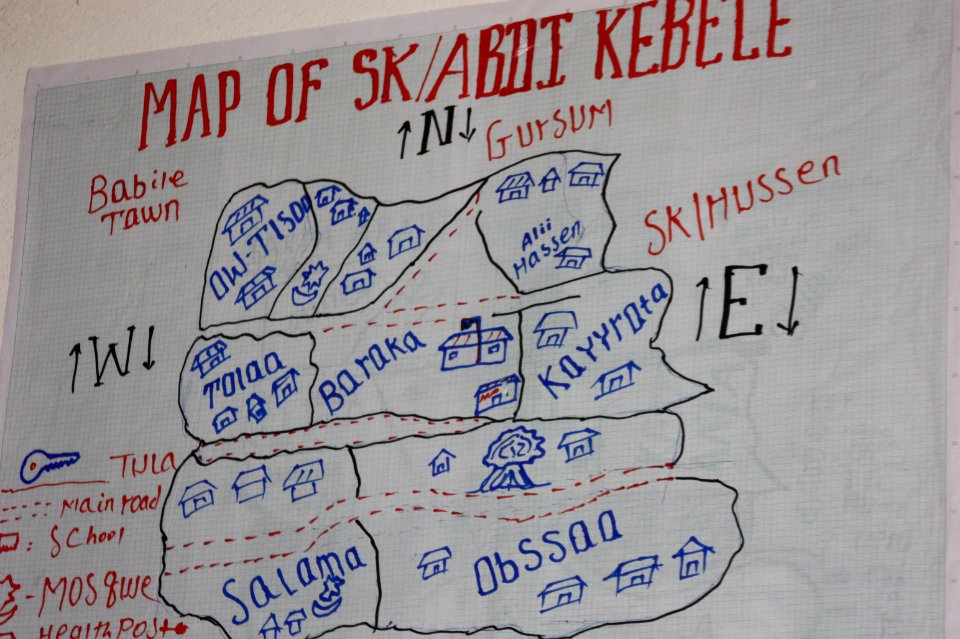 MAP OF SK/ABDI KEBELE
N
Gursum
Babile
Tawn
SK/Hussen
OW-Tisaa
Alii
Hassen
E
W
Tolaa
Baraka
Kayyrata
TULA
Main road
School
Salama
Obssaa
- MOSQWE
HealthPost